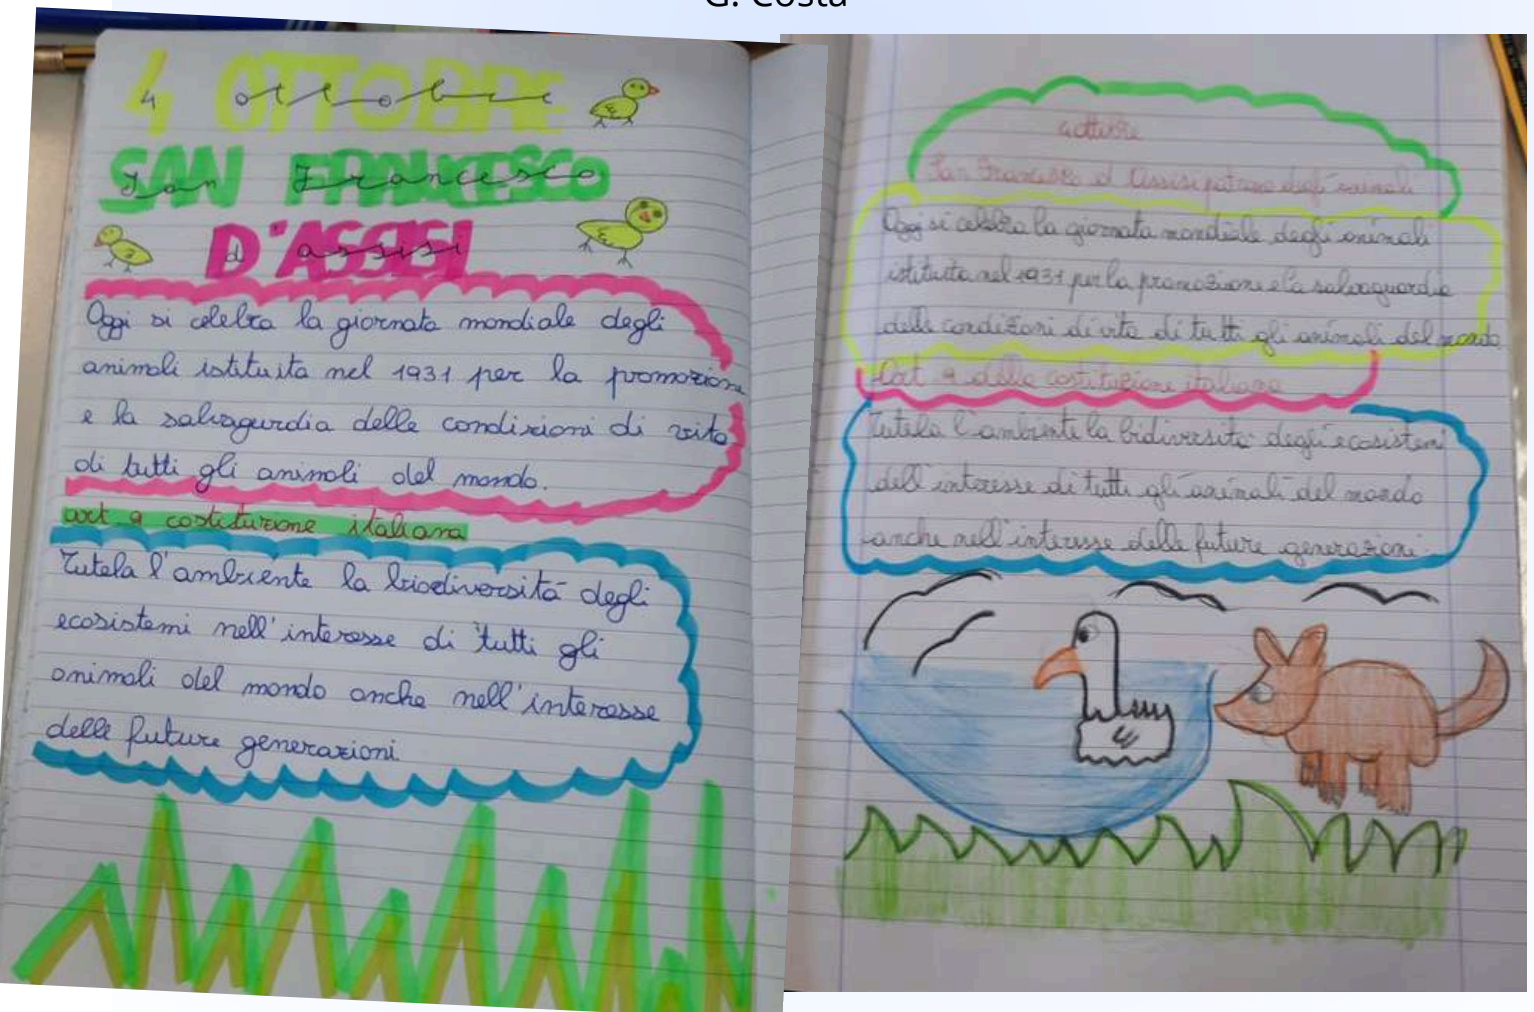 G. Costa
4 OTTOBRE
4 ottobre
SAN FRANCESCO
San Francesco
D'ASSISI
d assisi
Oggi si celebra la giornata mondiale degli
animali istituita nel 1931 per la promozione
e la salvagurdia delle condizioni di vita
di tutti gli animali del mondo.
art 9 costituzione italiana
Tutela l'ambiente la biodiversità degli
ecosistemi nell'interesse di tutti gli
animali del mondo anche nell'interesse
delle future generazioni
4 ottobre
San Francesco d Assisi patrono degli animali
Oggi si celebra la giornata mondiale degli animali
istituita nel 1931 per la promozione e la salvaguardia
delle condizioni di vita di tutti gli animali del mondo
Art 9 della costituzione italiana
Tutela l'ambiente la bidiversità degli ecosistemi
dell'interesse di tutti gli animali del mondo
anche nell'interesse delle future generazioni.